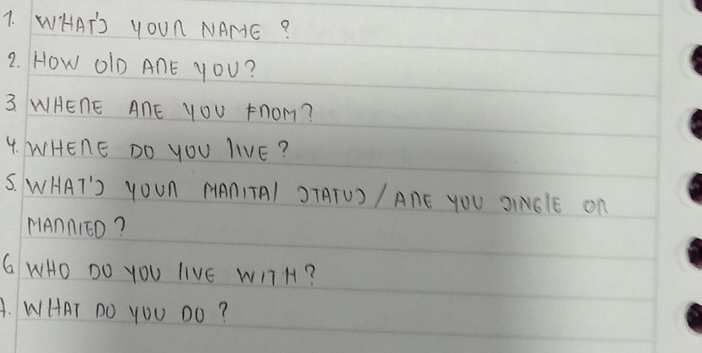 1. WHAT'S YOUR NAME?
2. HOW OLD ARE YOU?
3 WHERE ARE YOU FROM?
4. WHERE DO YOU LIVE?
5. WHAT'S YOUR MARITAL STATUS/ARE YOU SINGLE OR
MARRIED?
6 WHO DO YOU LIVE WITH?
7. WHAT DO YOU DO?